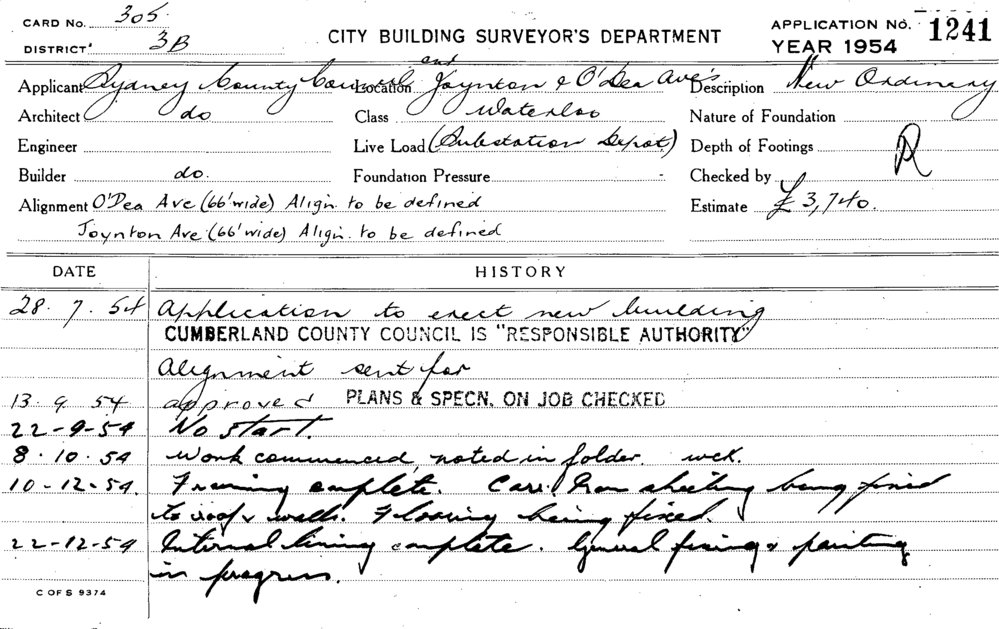 CARD No. 305
DISTRICT 3B
CITY BUILDING SURVEYOR'S DEPARTMENT
APPLICATION No. 1241
YEAR 1954
Applicant Sydney County Council Location Joynton and & O'Dea Ave's Description New Ordinary
Architect do Class Waterloo Nature of Foundation
Engineer Live Load (Substation Depot) Depth of Footings
Builder do. Foundation Pressure - Checked by
Alignment O'Dea Ave (66' wide) Align. to be defined Estimate £3,740.
Joynton Ave (66' wide) Align. to be defined
DATE HISTORY
28. 7. 54 Application to erect new building
CUMBERLAND COUNTY COUNCIL IS "RESPONSIBLE AUTHORITY"
Alignment sent for
13. 9. 54 approved PLANS & SPECN. ON JOB CHECKED
22-9-54 No start.
8. 10. 54 Work commenced, noted in folder. wck.
10-12-54. Framing complete. Corr. Iron sheeting being fixed
to roof & walls. Flooring being fixed.
22-12-54 Internal lining complete. General fixing & painting
in progress.
C OF S 9374